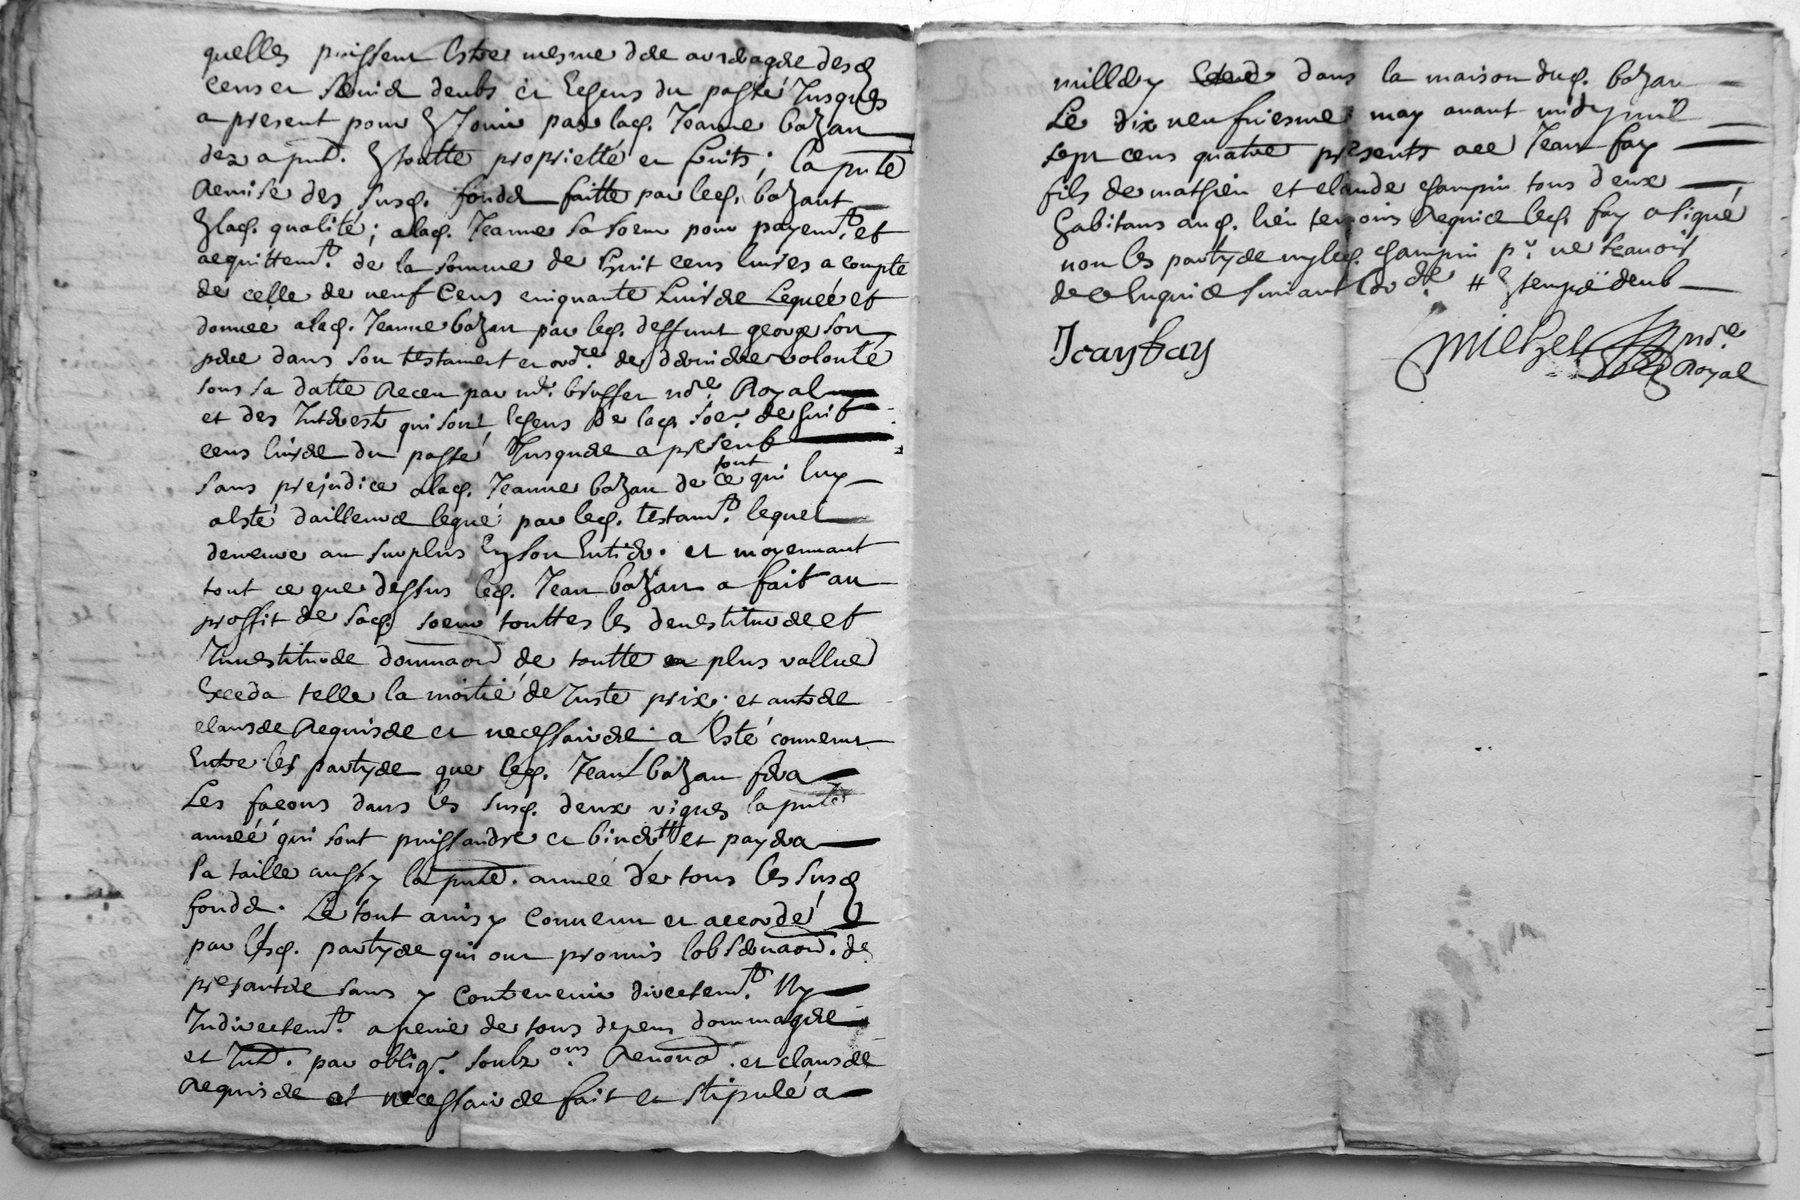 quelles puissent Estre mesme des arrerages desd
cens et servis deubs et Escheus du passé Jusques
a present pour Jouir par lad. Jeanne bozan
dez a pnt. toutte proprietté et fruits; la pnte
Remise des susd. fonds faitte par led. bozant
qualité; a lad. Jeanne sa soeur pour payemt. et
acquittemt. de la somme de huit cens livres a compte
de celle de neuf Cens cinquante Livres Leguée et
donnée a lad. Jeanne bozan par led. deffunt george son
pere dans son testament et de derniere volonté
sous sa datte Receu par Royal
et des Interests qui sont de lad. soeur de huit
cens livres du passé Jusques a present
sans prejudice a lad. Jeanne bozan de tout ce qui luy
a esté dailleurs legué par led. testamt. lequel
demeure au surplus En son Entier. et moyennant
tout ce que dessus led. Jean bozan a fait au
proffit de sad. soeur touttes les devestitures et
Investitures de toutte plus vallue
Exceda telle la moitié de Juste prix; et autres
clauses Requises et necessaires. a Esté convenu
Entre les partyes que led. Jean bozan fera
Les façons dans les susd. deux vignes la pnte
année qui sont et et payera
la taille aussy la pnte. année de tous les susd
fonds. Le tout ainsy Convenu et accordé
par lesd. partyes qui ont promis lobservaon. des
presantes sans y Contrevenir directemt. Ny
Indirectemt. a peine de tous depens dommages
et Int. par oblig. soubz Renona. et clauses
Requises et necessaires fait et stipulé a
millery dans la maison dud. bozan
Le dix neufviesme may avant midy mil
sept cens quatre presents Jean fay
fils de mathieu et claude champin tous deux
habitans aud. lieu temoins Requis led. fay a signé
non les partyes ny led. champin pr. ne scavoir
de ce Enquis suivant
Jean fay
Royal